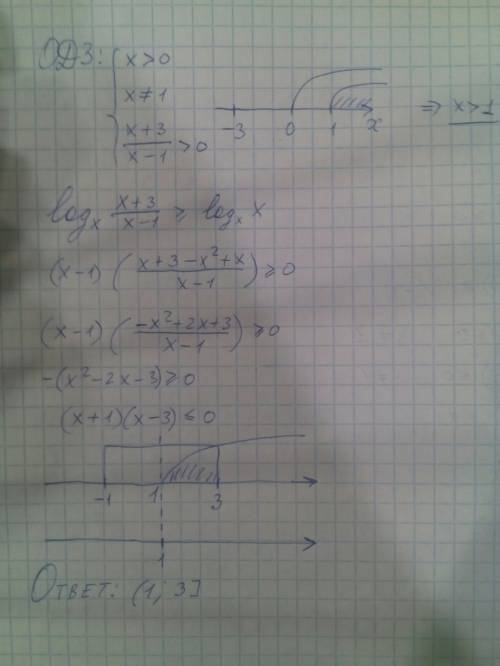 ОДЗ: { x>0
x≠1
(x+3)/(x-1) >0
-3 0 1 x ⇒ x>1
log_x (x+3)/(x-1) ≥ log_x x
(x-1)((x+3-x²+x)/(x-1)) ≥0
(x-1)((-x²+2x+3)/(x-1)) ≥0
-(x²-2x-3)≥0
(x+1)(x-3)≤0
-1 1 3
1
Ответ: (1; 3]